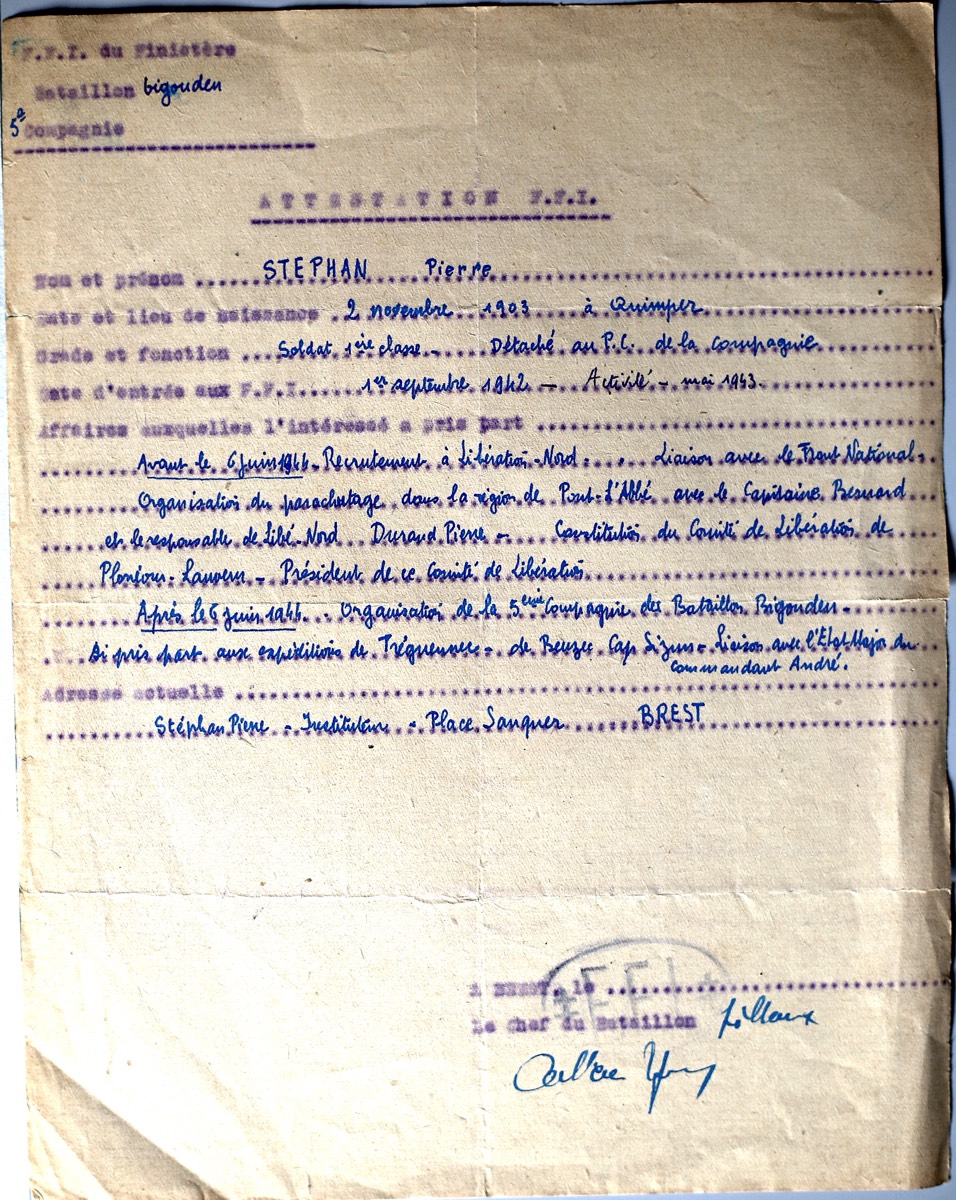 F.F.I. du Finistère
Bataillon bigouden
5e Compagnie
ATTESTATION F.F.I.
Nom et prénom ...... STEPHAN Pierre
Date et lieu de naissance . 2 novembre 1903 à Quimper
Grade et fonction ... Soldat 1ère classe - Détaché au P.C. de la compagnie
Date d'entrée aux F.F.I. 1er septembre 1942 - Activité - mai 1943.
Affaires auxquelles l'intéressé a pris part ...
Avant le 6 juin 1944 - Recrutement à Libération-Nord. Liaison avec le Front National.
Organisation du parachutage dans la région de Pont-L'Abbé avec le Capitaine Besnard
et le responsable de Libé-Nord Durand Pierre - Constitution du Comité de Libération de
Plonéour-Lanvern - Président de ce Comité de Libération
Après le 6 juin 1944 - Organisation de la 5ème Compagnie des Bataillon Bigouden -
Ai pris part aux expéditions de Tréguennec - de Beuzec Cap Sizun - Liaison avec l'Etat-Major du
commandant André.
Adresse actuelle ...
Stéphan Pierre - Instituteur - Place Sanquer BREST
FFI
A BREST, le ...
Le Chef du Bataillon